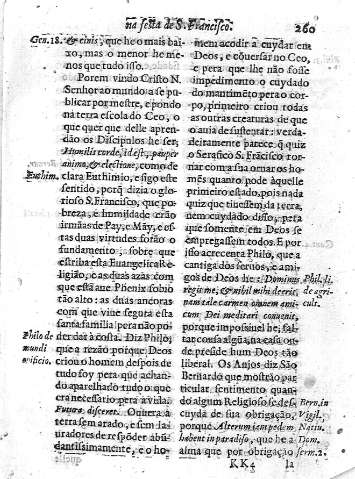 na festa de S. Francisco. 260
Gen. 18. & cinis, que he o mais bai-
xo, mas o menor he me-
nos que tudo isso.
Porem vindo Cristo N.
Senhor ao mundo a se pu-
blicar por mestre, e pondo
na terra escola do Ceo, o
que quer que delle apren-
dão os Discipulos he ser,
Humilis corde, id est, pauper
animo, & electione, como de-
Euthim. clara Euthimio, e sigo este
sentido, porq̃ dizia o glo-
rioso S. Francisco, que po-
breza, e humildade erão
irmãas de Pay, e Mãy, e es-
tas duas virtudes forão o
fundamento, sobre que
estriba esta Euangelica Re-
ligião, e as duas azas com
que esta aue Phenix sobio
tão alto: as duas ancoras
com que viue segura esta
santa familia pera não po-
Philo de der dar à costa. Diz Philo,
mundi que a rezão porque Deos
opificio. criou o homem despois de
tudo foy pera que achan-
do aparelhado tudo o que
era necessario pera a vida,
Futura disceret. Ouuera a
terra sem arado, e sem la-
uradores de respõder abũ-
dantissimamente, e o ho-
mem acodir a cuydar em
Deos, e cõuersar no Ceo,
e pera que lhe não fosse
impedimento o cuydado
do mantimẽto pera o cor-
po, primeiro criou todas
as outras creaturas de que
o auia de sustentar: verda-
deiramente parece q̃ quiz
o Serafico S. Frãcisco tor-
nar com a sua ornar os ho-
mẽs quanto pode àquelle
primeiro estado, pois nada
quiz que tiuessem da terra,
nem cuydado disso, pera
que somente em Deos se
empregassem todos. E por
isso acrecenta Philo, que a
cantiga dos seruos, e ami-
gos de Deos he: Dominus Phil. li.
regit me, & nihil mihi deerit; de agri-
nam tale carmen omnem ami- cult.
cum Dei meditari conuenit,
porque impossiuel he, fal-
tar cousa algũa, na casa on-
de preside hum Deos tão
liberal. Os Anjos diz São
Bernardo que mostrão par
ticular sentimento quan-
do algum Religioso se des- Bern. in
cuyda de sua obrigação, Vigil.
porque Alterum iam pedem Natiu.
habent in paradiso, que he a Dom.
alma que por obrigação serm. 2.
KK4 la